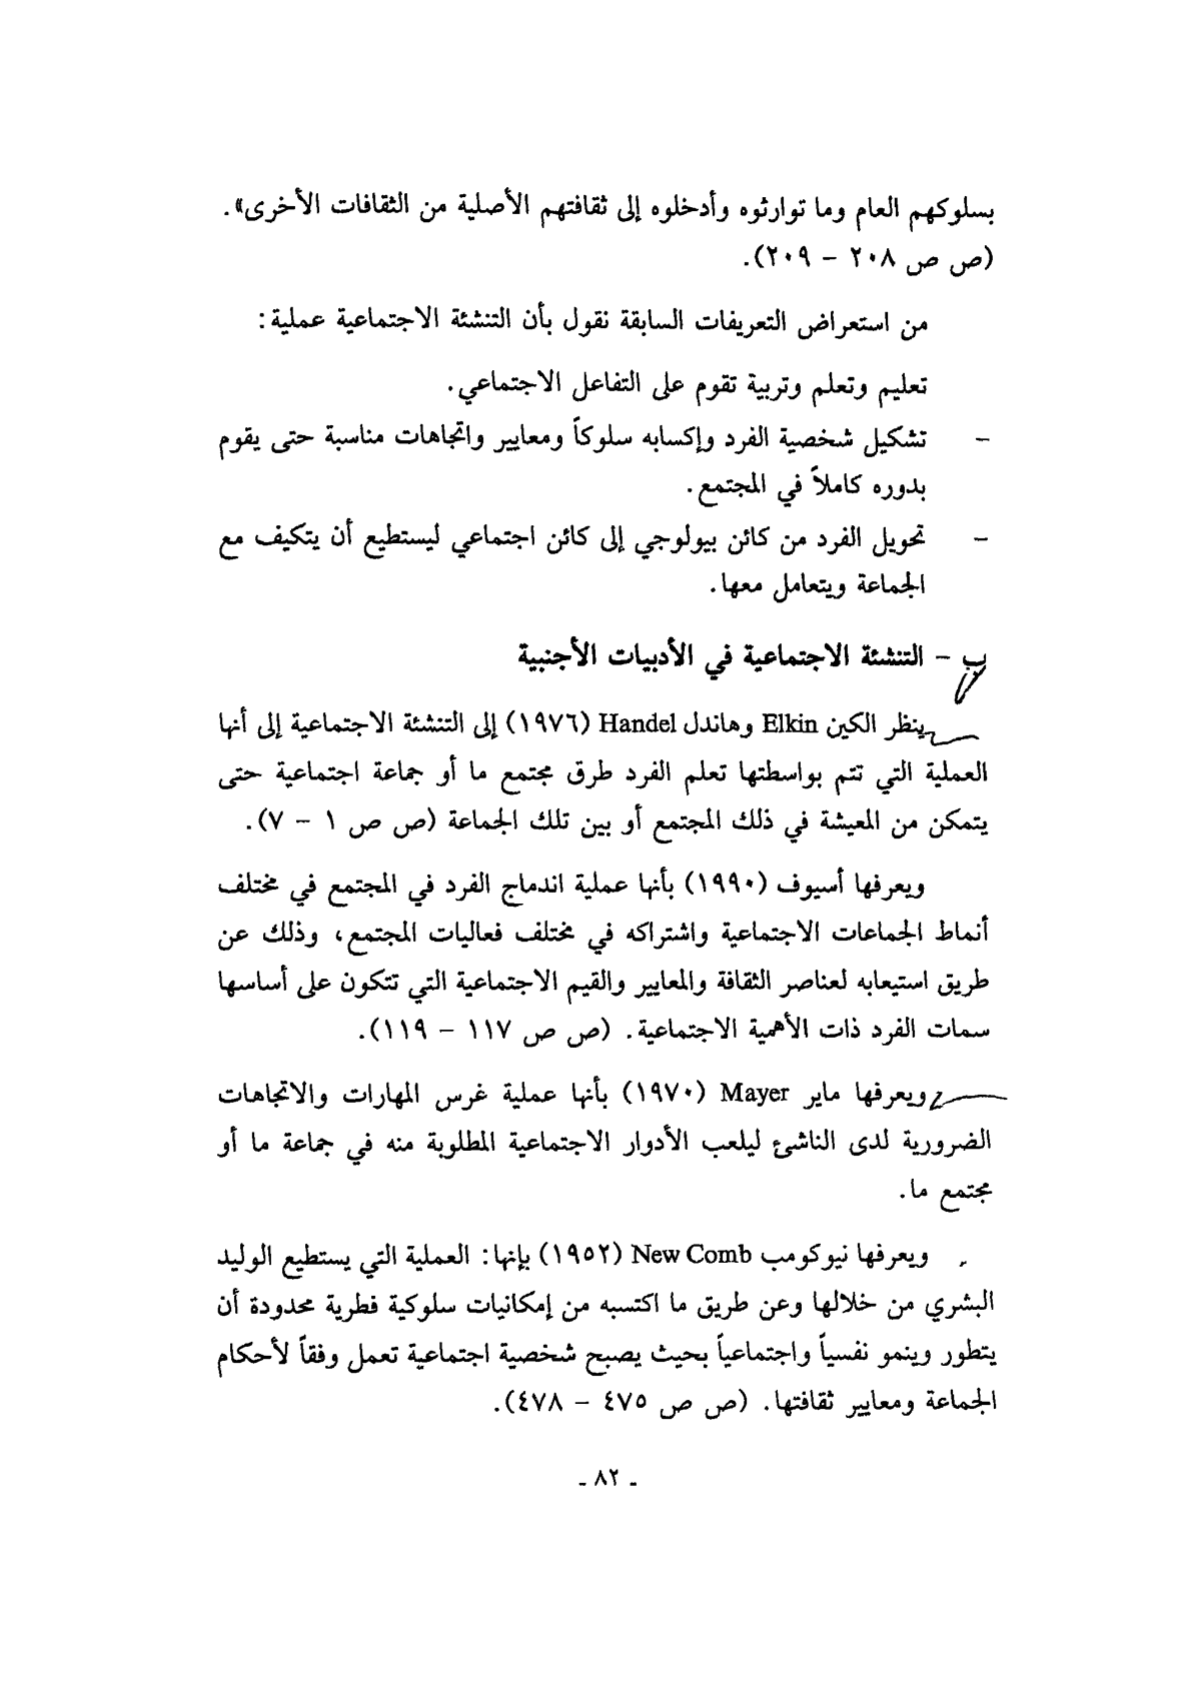 بسلوكهم العام وما توارثوه وأدخلوه إلى ثقافتهم الأصلية من الثقافات الأخرى».
(ص ص ٢٠٨ – ٢٠٩).
من استعراض التعريفات السابقة نقول بأن التنشئة الاجتماعية عملية:
تعليم وتعلم وتربية تقوم على التفاعل الاجتماعي.
– تشكيل شخصية الفرد وإكسابه سلوكاً ومعايير واتجاهات مناسبة حتى يقوم
بدوره كاملاً في المجتمع.
– تحويل الفرد من كائن بيولوجي إلى كائن اجتماعي ليستطيع أن يتكيف مع
الجماعة ويتعامل معها.
ب – التنشئة الاجتماعية في الأدبيات الأجنبية
ينظر الكين Elkin وهاندل Handel (١٩٧٦) إلى التنشئة الاجتماعية إلى أنها
العملية التي تتم بواسطتها تعلم الفرد طرق مجتمع ما أو جماعة اجتماعية حتى
يتمكن من المعيشة في ذلك المجتمع أو بين تلك الجماعة (ص ص ١ – ٧).
ويعرفها أسيوف (١٩٩٠) بأنها عملية اندماج الفرد في المجتمع في مختلف
أنماط الجماعات الاجتماعية واشتراكه في مختلف فعاليات المجتمع، وذلك عن
طريق استيعابه لعناصر الثقافة والمعايير والقيم الاجتماعية التي تتكون على أساسها
سمات الفرد ذات الأهمية الاجتماعية. (ص ص ١١٧ – ١١٩).
ويعرفها ماير Mayer (١٩٧٠) بأنها عملية غرس المهارات والاتجاهات
الضرورية لدى الناشئ ليلعب الأدوار الاجتماعية المطلوبة منه في جماعة ما أو
مجتمع ما.
ويعرفها نيوكومب New Comb (١٩٥٢) بإنها: العملية التي يستطيع الوليد
البشري من خلالها وعن طريق ما اكتسبه من إمكانيات سلوكية فطرية محدودة أن
يتطور وينمو نفسياً واجتماعياً بحيث يصبح شخصية اجتماعية تعمل وفقاً لأحكام
الجماعة ومعايير ثقافتها. (ص ص ٤٧٥ – ٤٧٨).
ـ ٨٢ ـ